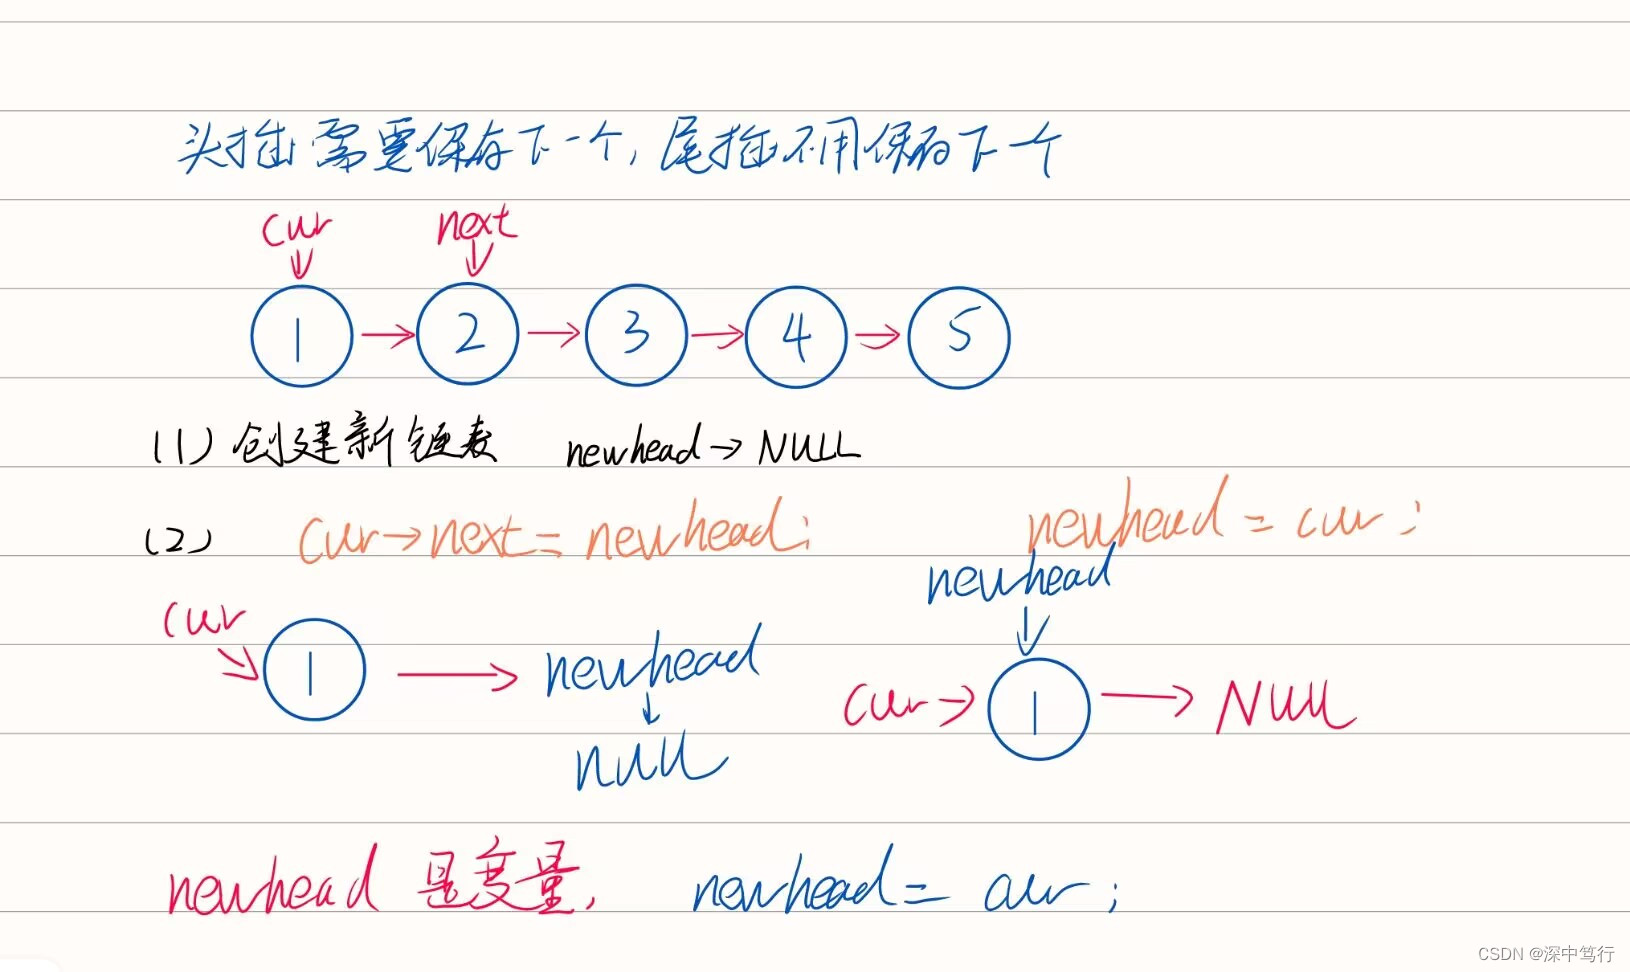 头插需要保存下一个,尾插不用保存下一个
cur next
1 → 2 → 3 → 4 → 5
(1) 创建新链表 newhead → NULL
(2) cur→next = newhead; newhead = cur;
newhead
cur 1 → newhead
cur → 1 → NULL
NULL
newhead 是变量, newhead = cur;
CSDN @深中笃行